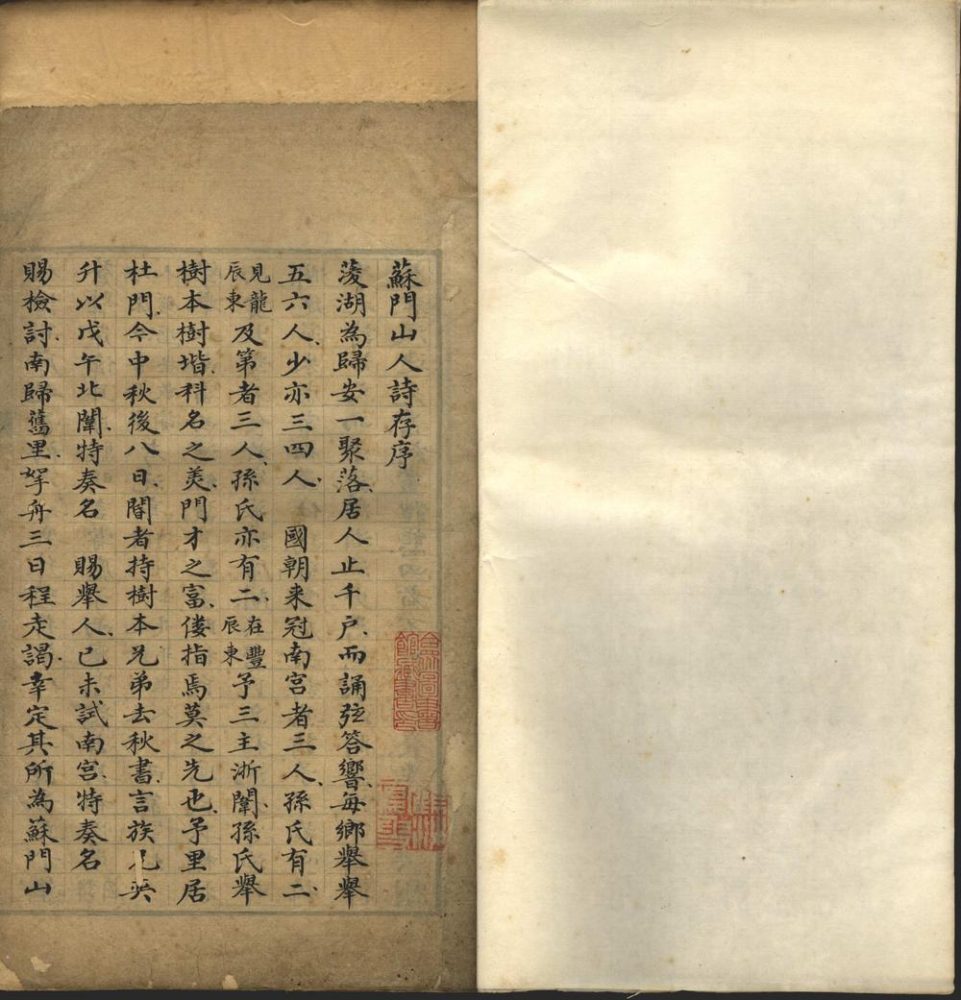 蘇門山人詩存序
菱湖為歸安一聚落居人止千戶而誦弦答響每鄉舉舉
五六人少亦三四人 國朝来冠南宮者三人孫氏有二
見龍辰東及第者三人孫氏亦有二在豐辰東予三主浙闈孫氏舉
樹本樹堦科名之美門才之富僂指焉莫之先也予里居
杜門今中秋後八日閽者持樹本兄弟去秋書言族兄英
升以戊午北闈特奏名 賜舉人己未試南宮特奏名
賜檢討南歸舊里挐舟三日程走謁幸定其所為蘇門山